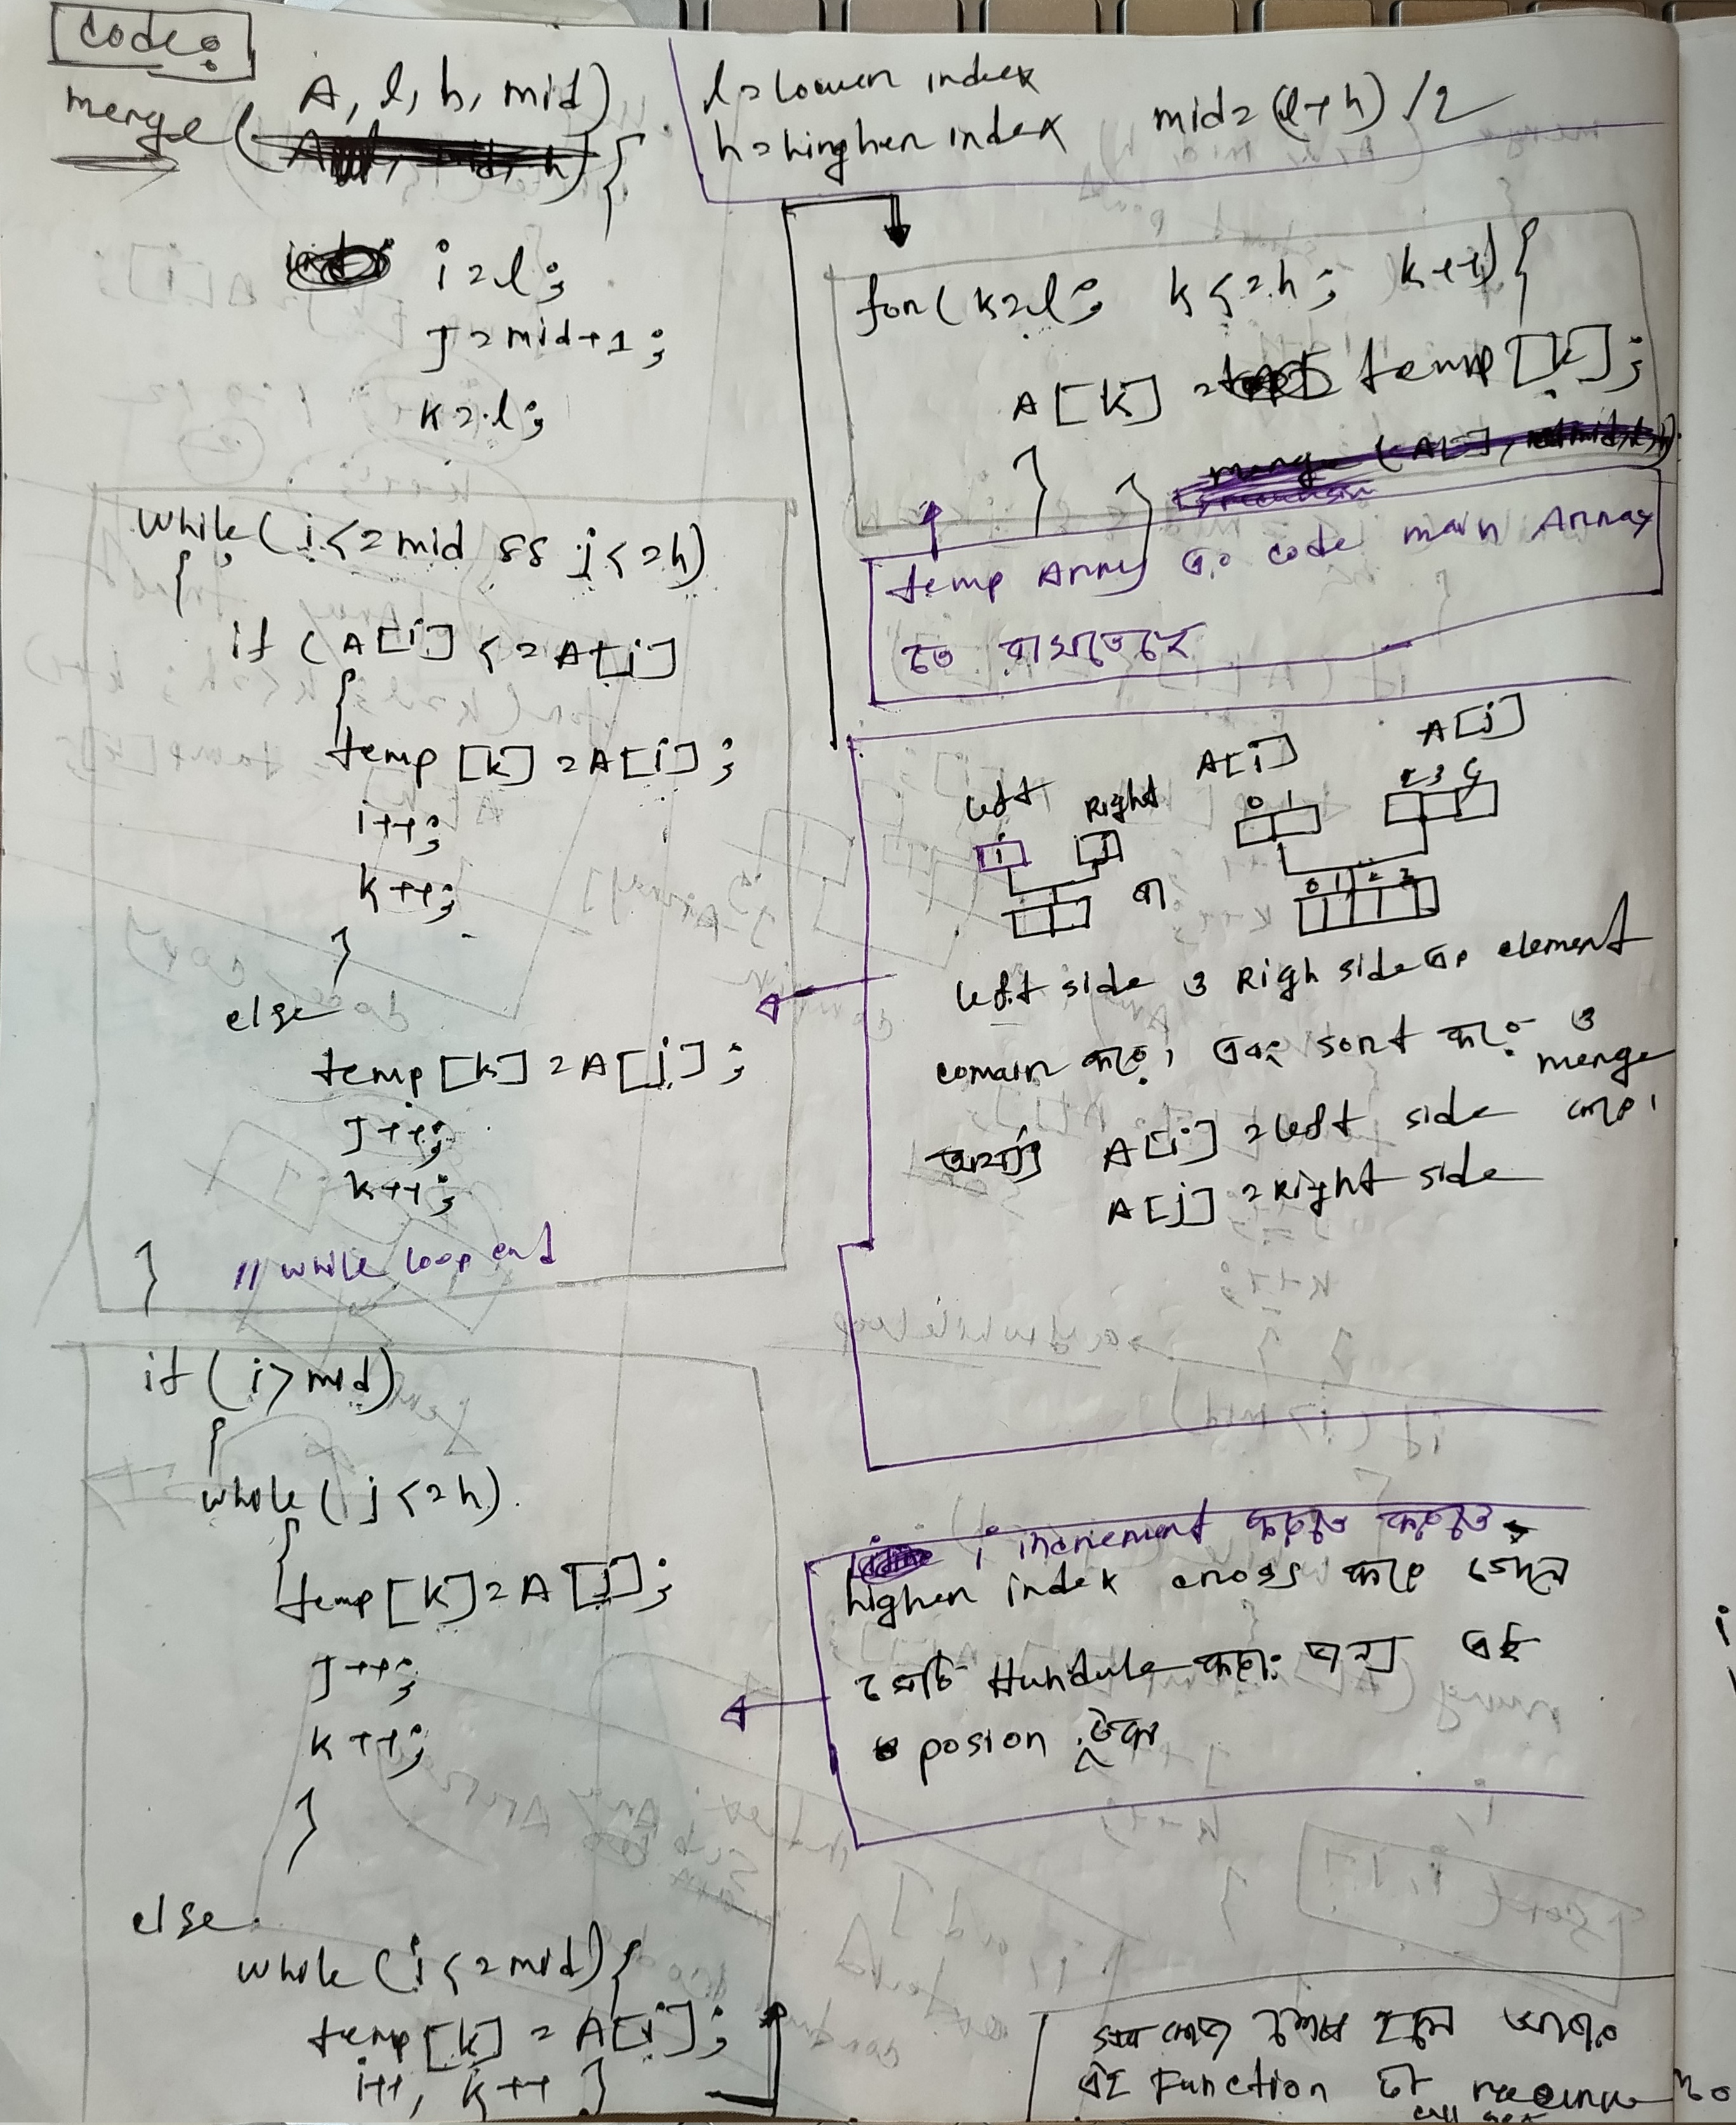 code:
merge ( A, l, h, mid)
{
i=l;
J=mid+1;
k=l;
while ( i<=mid && j<=h)
{
if (A[i] <= A[j]
{
temp [k] = A[i];
i++;
k++;
}
else
temp [k] = A[j];
J++;
k++;
} // while loop end
if (i>mid)
{
while ( j<=h)
{
temp [k]=A[j];
J++;
k++;
}
else
while (i<=mid){
temp [k] = A[i];
i++, k++ }
l=lower index
h=hingher index mid=(l+h)/2
for( k=l; k<=h; k++){
A[k] = temp [k];
} }
temp Array এর code main Array
তে রাখতেছে
left Right A[i] A[j]
i j 0 1 2 3 4
বা 0 1 2 3
left side ও Righ side এর element
comain করে, এবং sort করে ও
merge
A[i] = left side করে।
A[j] = Right side
i increment করতে করতে
higher index cross করে গেলে
সেটি Hundule করার জন্য এই
posion টুকু
সব কাজ শেষ হলে আবার
এই Function টা
call